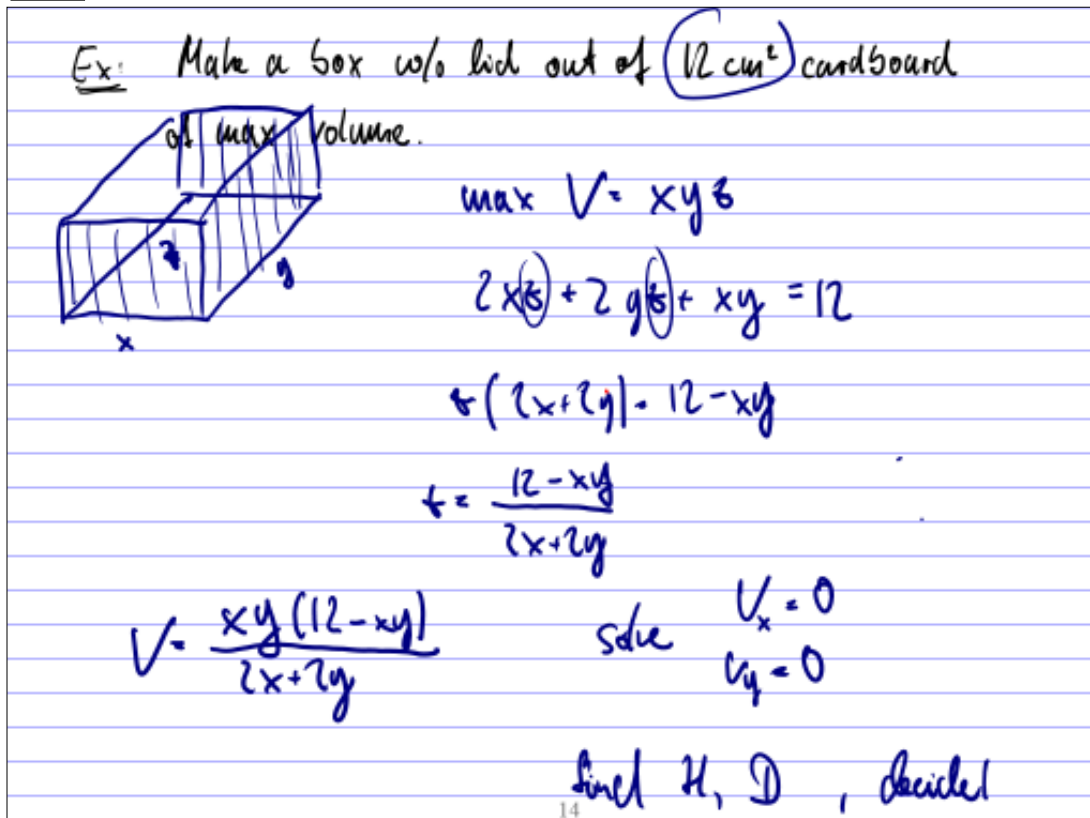 Ex: Make a box w/o lid out of 12 cm² cardboard
of max volume.
z
y
x
max V = xyz
2xz + 2yz + xy = 12
z(2x+2y) = 12 - xy
z = (12 - xy)/(2x+2y)
V = xy(12 - xy)/(2x+2y)
solve Vx = 0
Vy = 0
find H, D, decide!
14